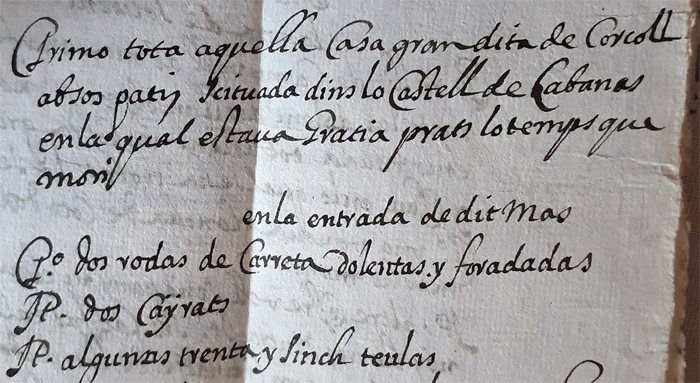 Primo tota aquella Casa gran dita de Corcoll
absos patis scituada dins lo Castell de Cabanas
en la qual estaua Gratia prats lo temps que
mori
en la entrada de dit Mas
Pº dos rodas de Carreta dolentas y foradadas
It. dos Cayrats
It. algunas trenta y sinch teulas